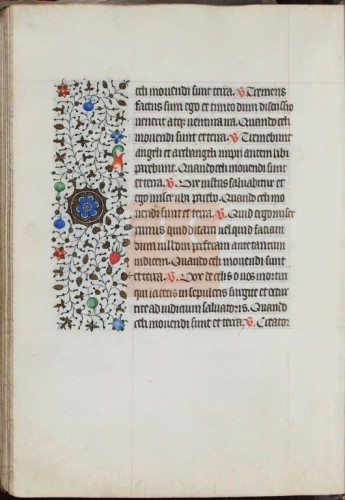 celi mouendi sunt terra. V Tremens
factus sum ego et timeo dum discussio
venerit atq; ventura ira. Quando celi
mouendi sunt et terra. V Tremebunt
angeli et archangeli impii autem ubi
parebunt. Quando celi mouendi sunt
et terra. V Vix iustus saluabitur et
ego miser ubi parebo. Quando celi mo
uendi sunt et terra. V Quid ego miser
rimus quid dicam vel quid faciam
dum nil boni perferam ante tantum
iudicem. Quando celi mouendi sunt
et terra. V Vox de celis o vos mortui
qui iacetis in sepulcris surgite et occur
rite ad iudicium saluatoris. Quando
celi mouendi sunt et terra. V Creator